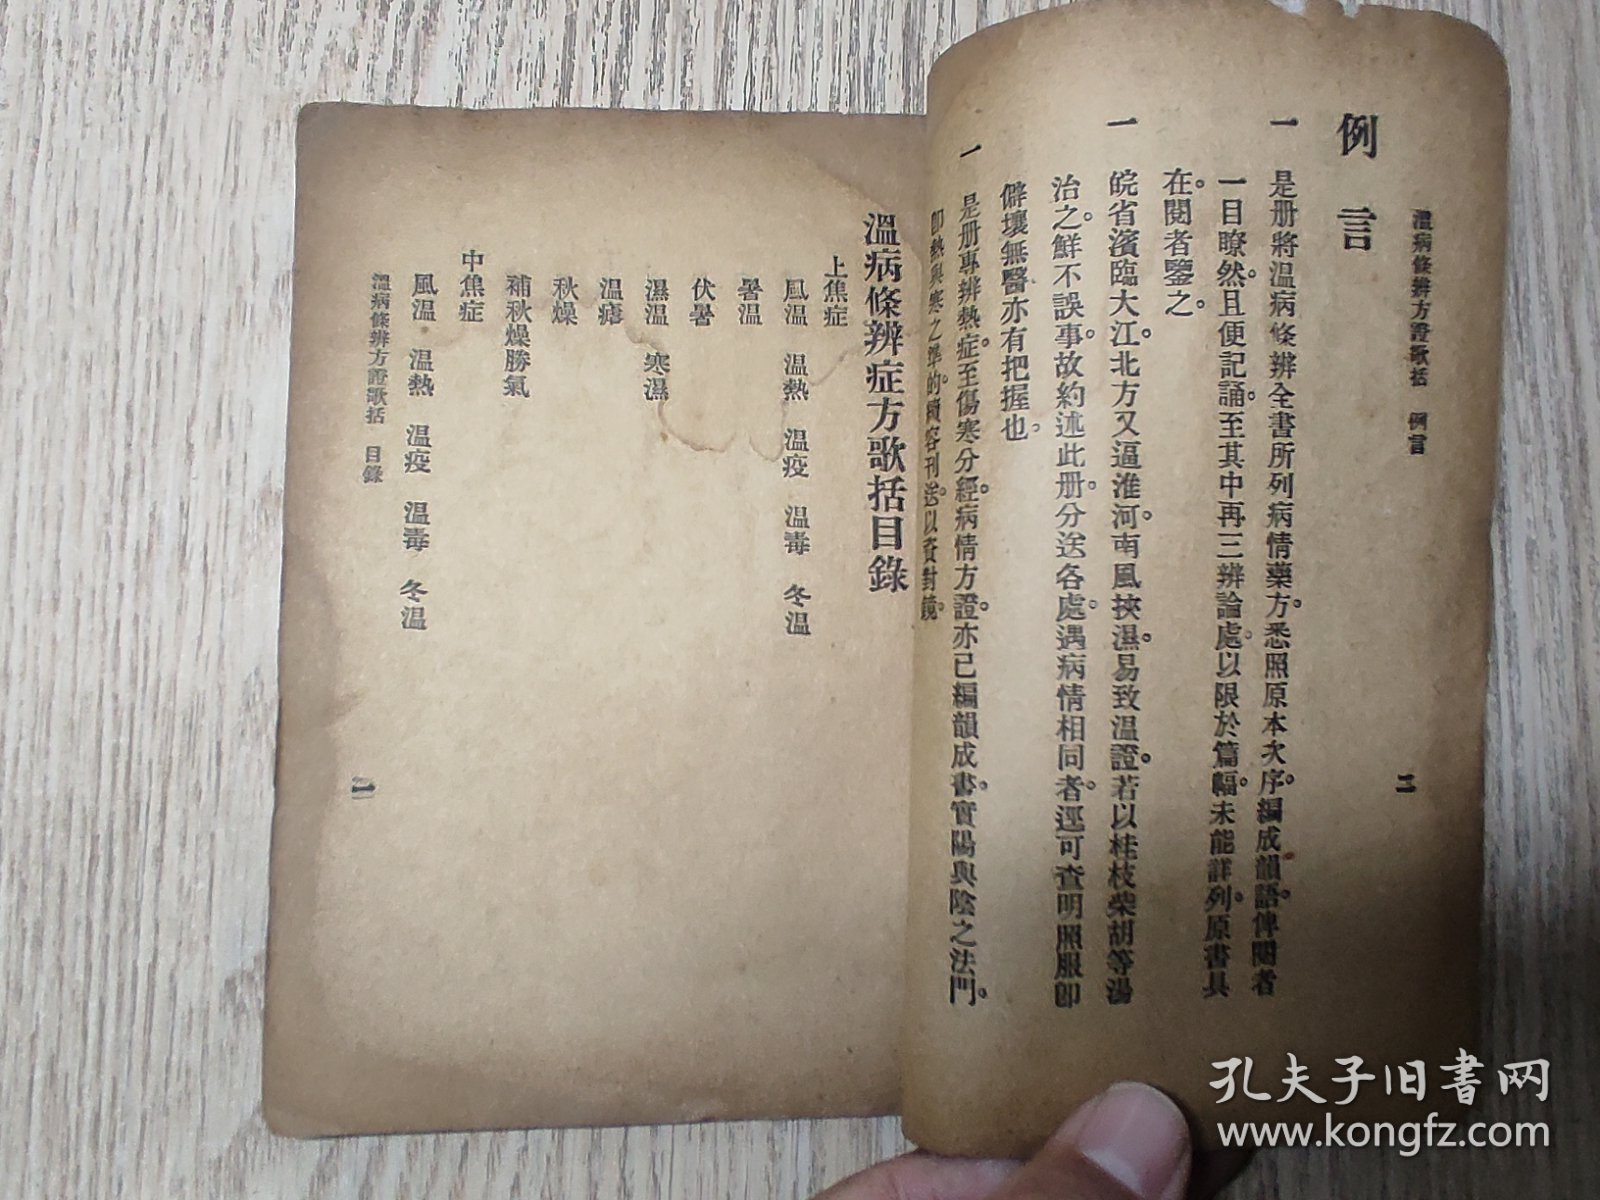 溫病條辨方證歌括　例言　二
例言
一　是册將溫病條辨全書所列病情藥方。悉照原本次序。編成韻語。俾閱者
一目瞭然。且便記誦。至其中再三辨論處。以限於篇幅。未能詳列。原書具
在。閱者鑒之。
一　皖省濱臨大江。北方又逼淮河。南風挾濕。易致溫證。若以桂枝柴胡等湯
治之。鮮不誤事。故約述此册。分送各處。遇病情相同者。逕可查明照服。卽
僻壤無醫亦有把握也。
一　是册專辨熱症。至傷寒分經。病情方證。亦已編韻成書。實陽與陰之法門。
卽熱與寒之準的。續容刊送。以資對鏡。
溫病條辨症方歌括目錄
上焦症
風溫　溫熱　溫疫　溫毒　冬溫
暑溫
伏暑
濕溫　寒濕
溫瘧
秋燥
補秋燥勝氣
中焦症
風溫　溫熱　溫疫　溫毒　冬溫
溫病條辨方證歌括　目錄　一
孔夫子旧书网
www.kongfz.com